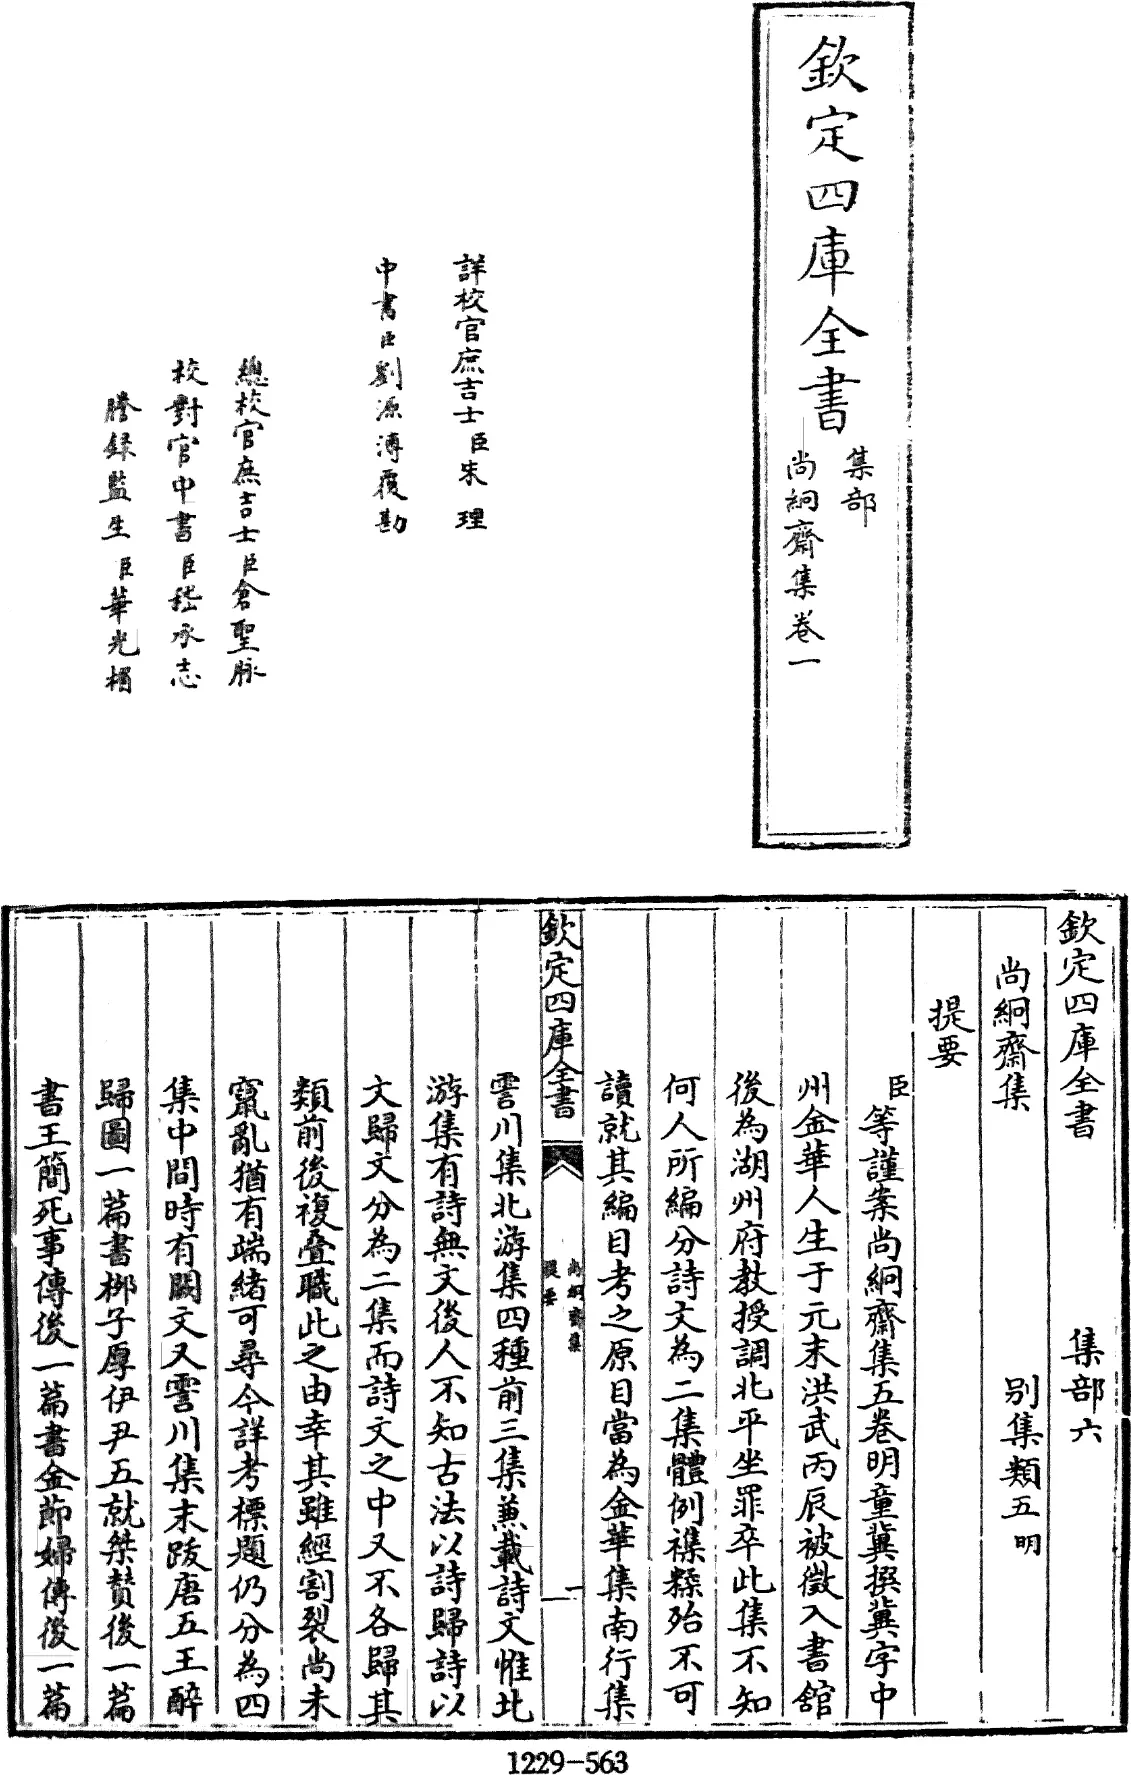 欽定四庫全書
集部
尚絅齋集卷一
詳校官庶吉士臣朱理
中書臣劉源溥覆勘
總校官庶吉士臣倉聖脉
校對官中書臣嵇承志
謄録監生臣華光楣
欽定四庫全書 集部六
尚絅齋集 别集類五明
提要
臣等謹案尚絅齋集五卷明童冀撰冀字中
州金華人生于元末洪武丙辰被徵入書館
後為湖州府教授調北平坐罪卒此集不知
何人所編分詩文為二集體例襍糅殆不可
讀就其編目考之原目當為金華集南行集
欽定四庫全書
尚絅齋集
提要
一
霅川集北游集四種前三集兼載詩文惟北
游集有詩無文後人不知古法以詩歸詩以
文歸文分為二集而詩文之中又不各歸其
類前後複疊職此之由幸其雖經割裂尚未
竄亂猶有端緒可尋今詳考標題仍分為四
集中間時有闕文又霅川集末跋唐五王醉
歸圖一篇書桺子厚伊尹五就桀贊後一篇
書王簡死事傳後一篇書金節婦傳後一篇
1229-563